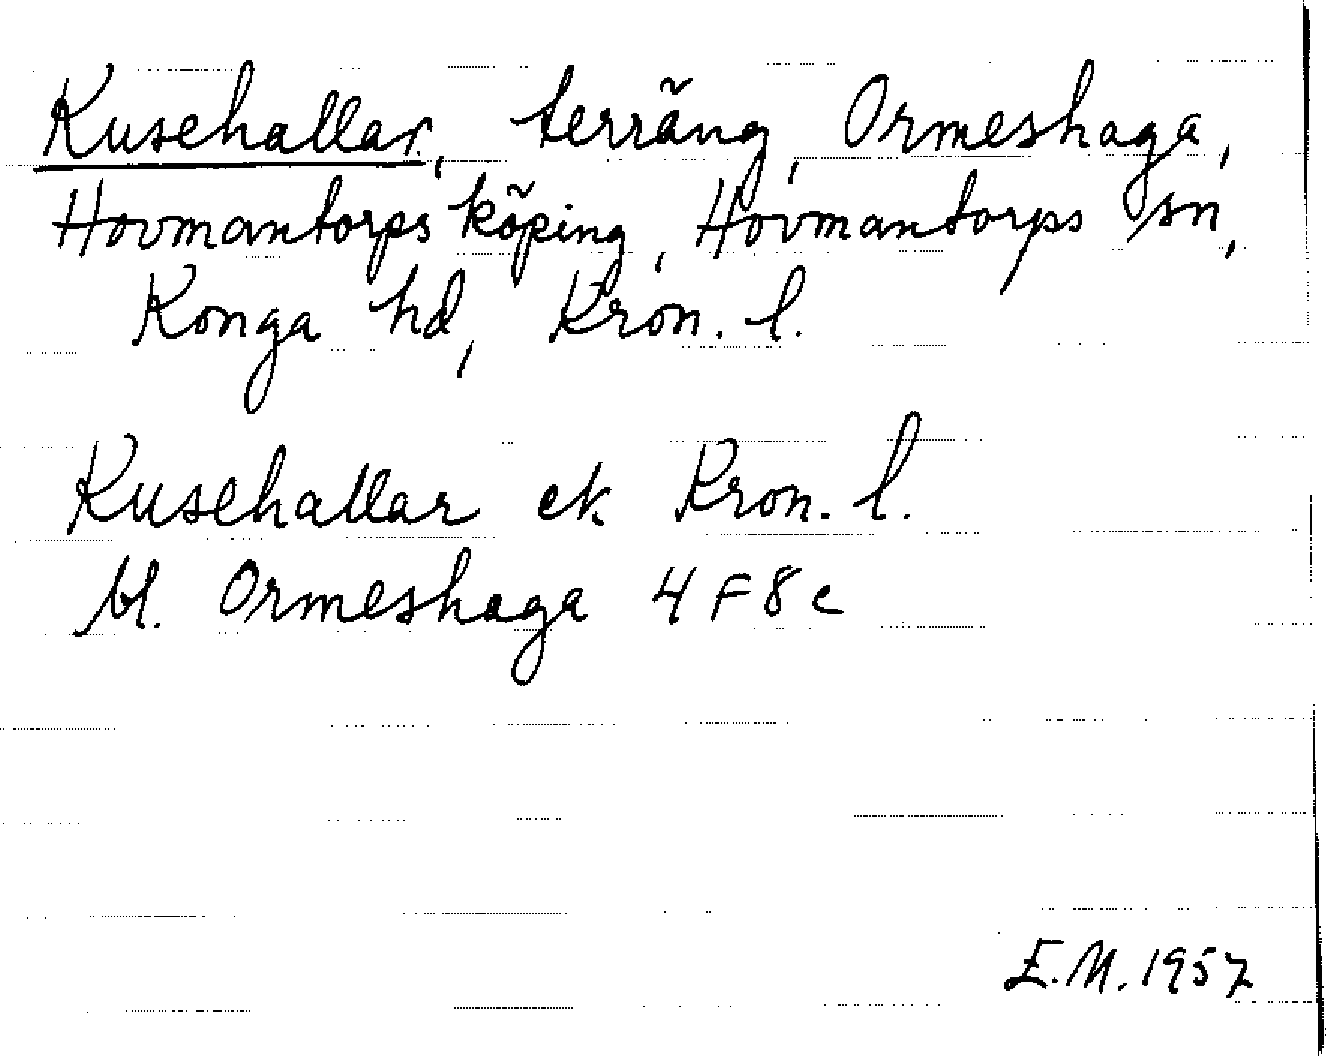 Kusehallar, terräng, Ormeshaga,
Hovmantorps köping, Hovmantorps sn,
Konga hd, Kron. l.
Kusehallar ek Kron. l.
bl. Ormeshaga 4 F 8 e
E.M. 1957